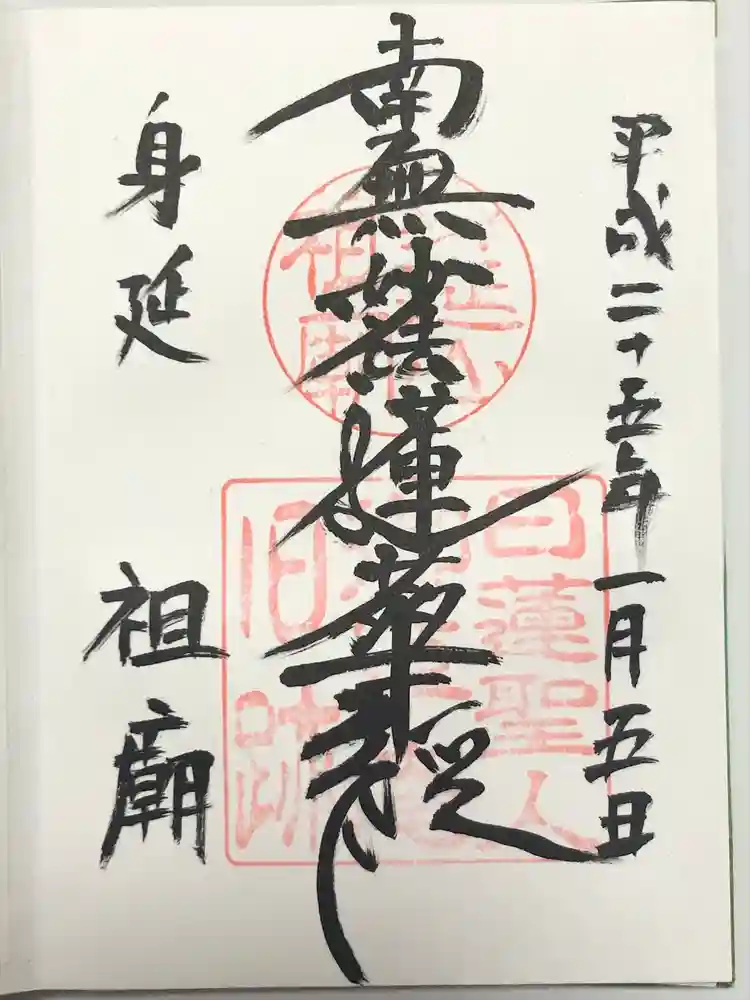 平成二十五年一月五日
南無妙法蓮華経
身延
祖廟
日蓮聖人
旧跡